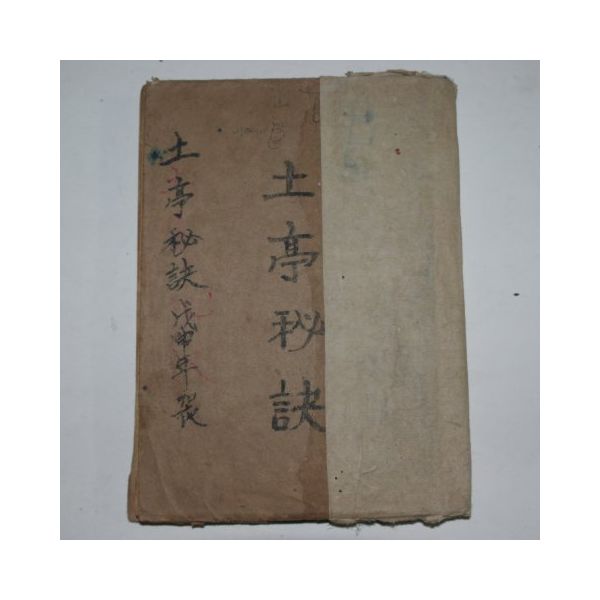 土亭秘訣
土亭秘訣 戊申年製